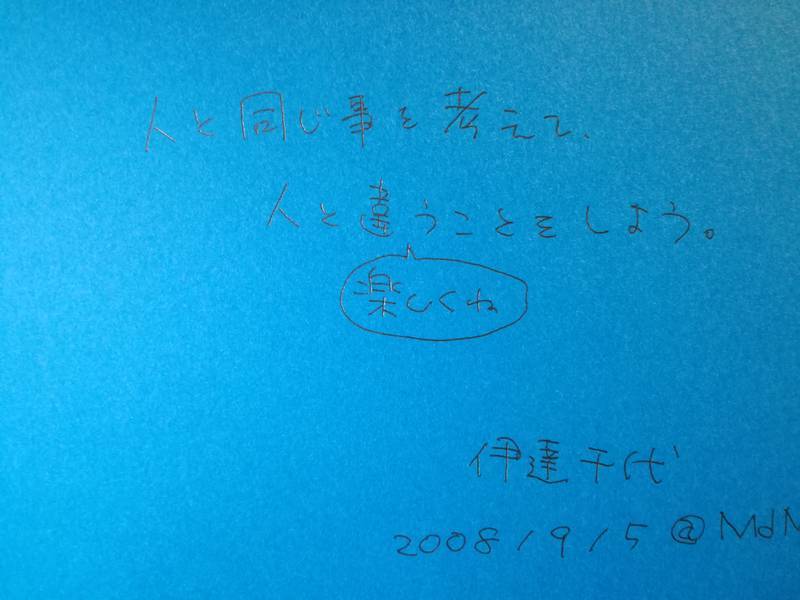 人と同じ事を考えて、
人と違うことをしよう。
楽しくね
伊達千代
2008/9/5 @MdN